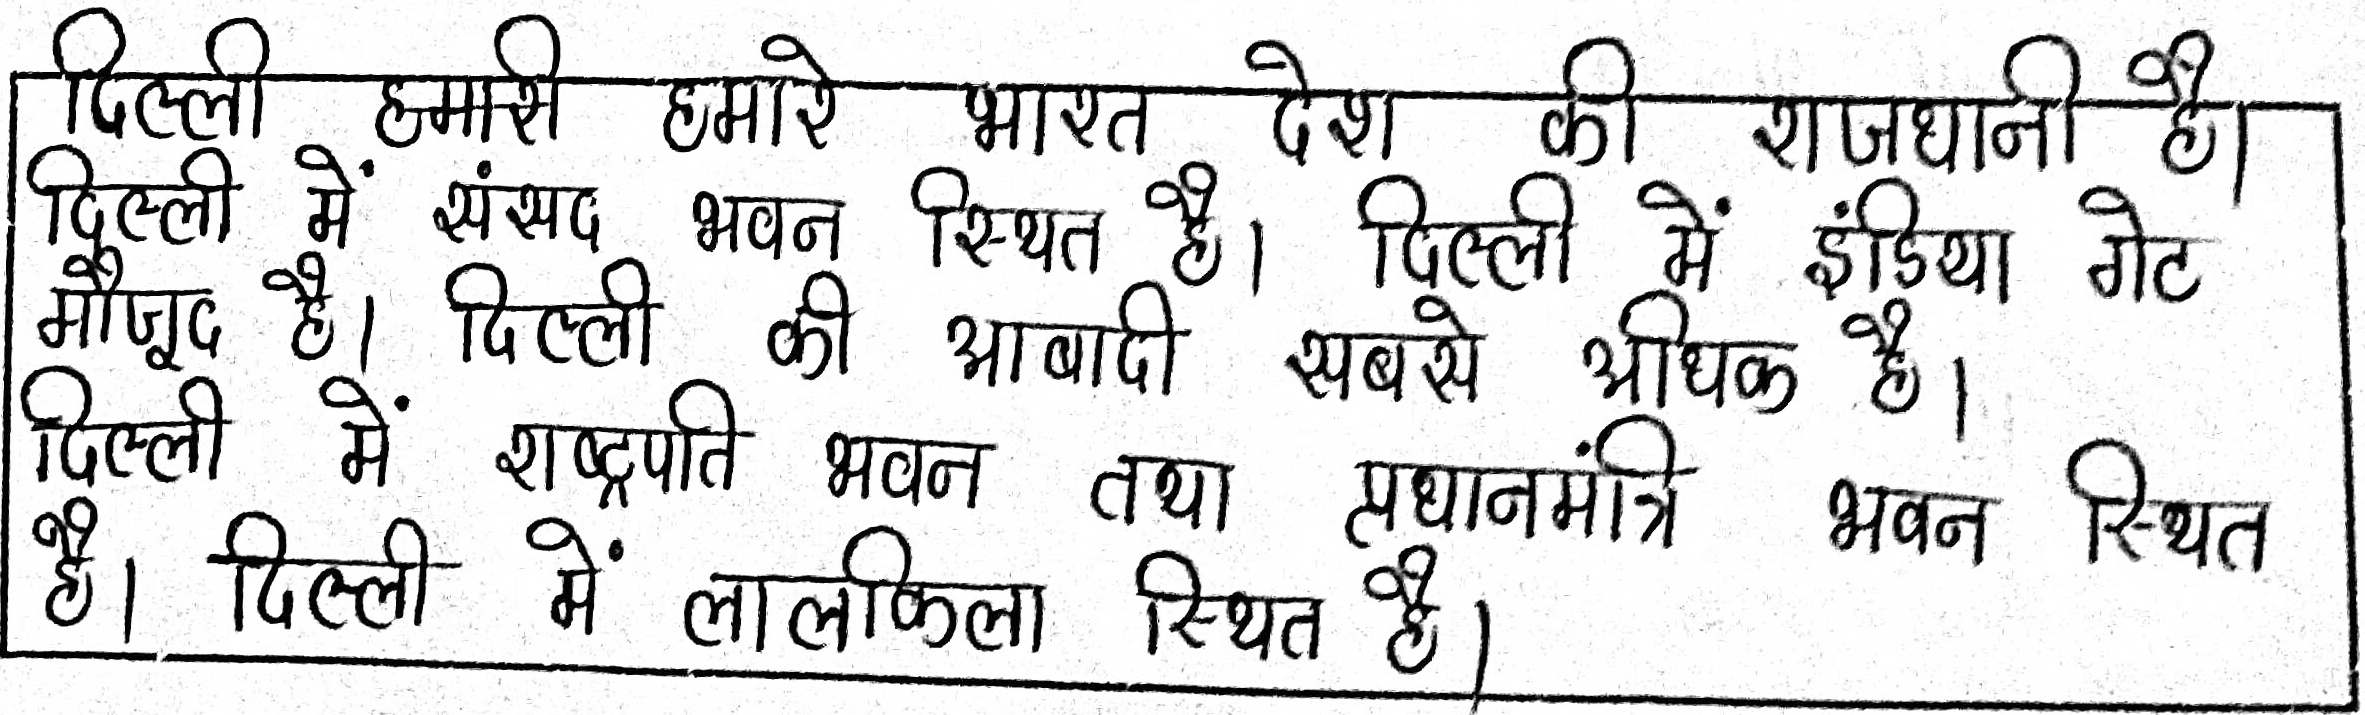 दिल्ली हमारी हमारे भारत देश की राजधानी है।
दिल्ली में संसद भवन स्थित है। दिल्ली में इंडिया गेट
मौजूद है। दिल्ली की आबादी सबसे अधिक है।
दिल्ली में राष्ट्रपति भवन तथा प्रधानमंत्रि भवन स्थित
है। दिल्ली में लालकिला स्थित है।